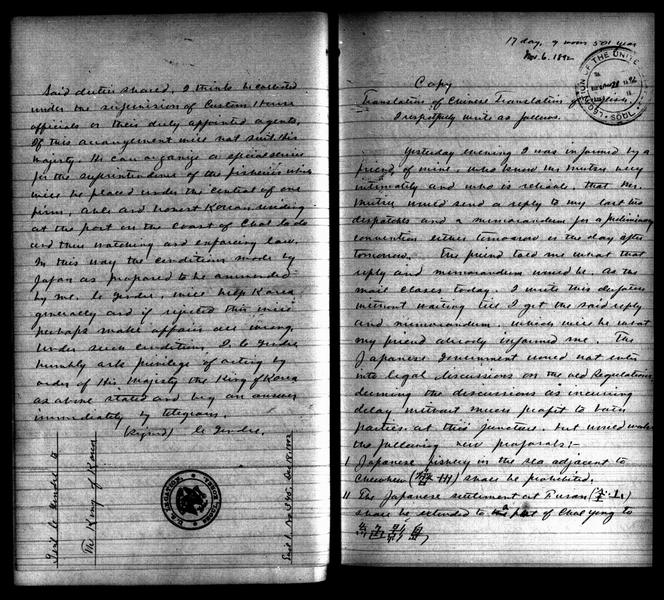 Said duties shared, I think be collected
under the supervision of Custom House
officials or their duly appointed agents.
If this arrangement will not suit His
Majesty, He can organize a special service
for the superintendence of the fisheries which
will be placed under the control of one
firm, able and honest Korean residing
at the port on the Coast of Chollado
and then watching and enforcing law.
In this way the conditions made by
Japan as prepared to be ammended
by me. Le Gendre, will help Korea
generally and if rejected this will
perhaps make affairs all wrong.
Under such conditions I, Le Gendre
humbly ask privilege of acting by
order of His Majesty the King of Korea
as above stated and beg an answer
immediately by telegram.
(Signed) Le Gendre.
Genl Le Gendre to
The King of Korea
17 day, 9 moon 501 year
Nov. 6. 1892
Copy
Translation of Chinese Translation of English.
I respectfully write as follows.
Yesterday evening I was informed by a
friend of mine, who knew Mr. Mutsu very
intimately and who is reliable, that Mr.
Mutsu would send a reply to my last two
dispatches and a memorandum for a preliminary
convention either tomorrow or the day after
tomorrow. The friend told me what that
reply and memorandum would be. As the
mail closes today, I write this dispatch
without waiting till I get the said reply
and memorandum, which will be what
my friend already informed me. The
Japanese Government would not enter
into legal discussions on the old Regulations
deeming the discussions as incurring
delay without much profit to both
parties at this juncture, but would make
the following new proposals:-
I Japanese fishery in the sea adjacent to
Cheechew ( 州) shall be prohibited.
II The Japanese settlement at Fusan (
shall be extended to the port of Chol yong to